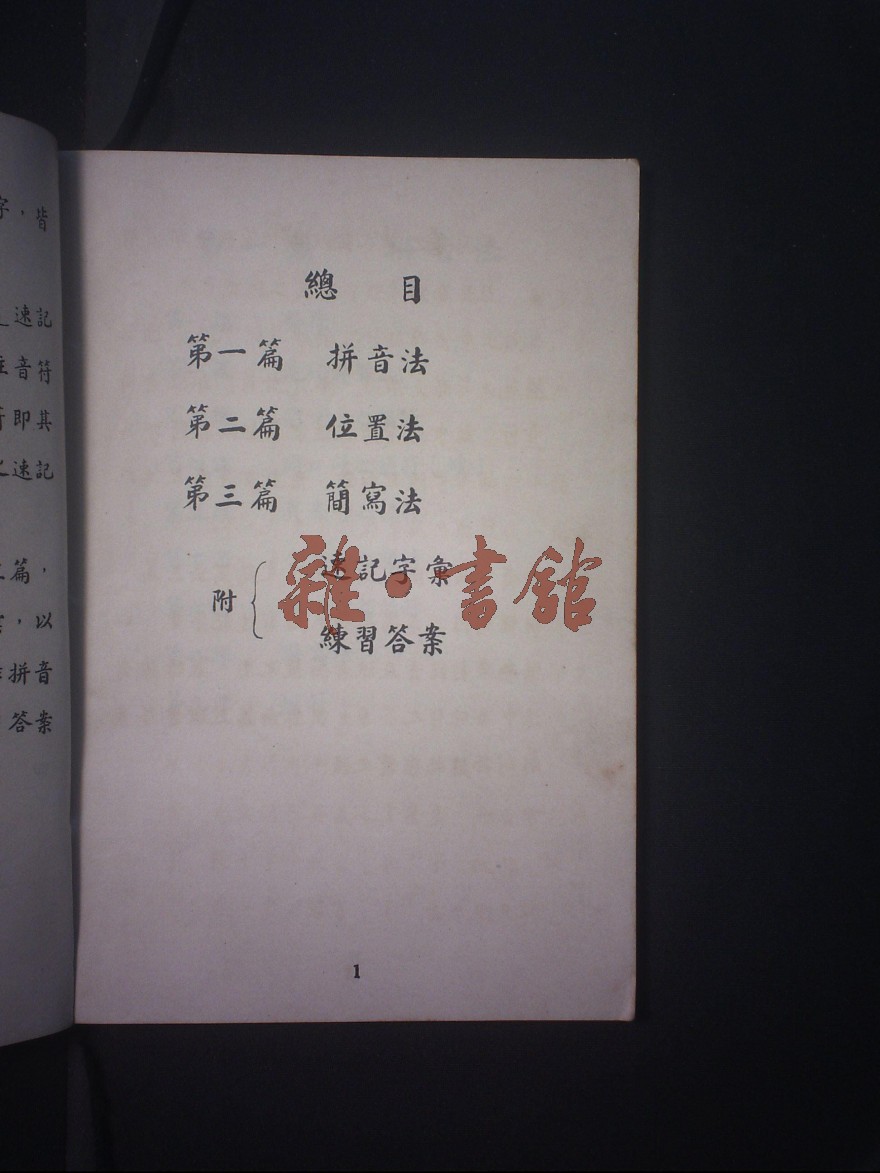 字，皆
速記
音符
即其
速記
篇，
，以
拼音
答案
總 目
第一篇 拼音法
第二篇 位置法
第三篇 簡寫法
附
速記字彙
雜·書館
練習答案
1